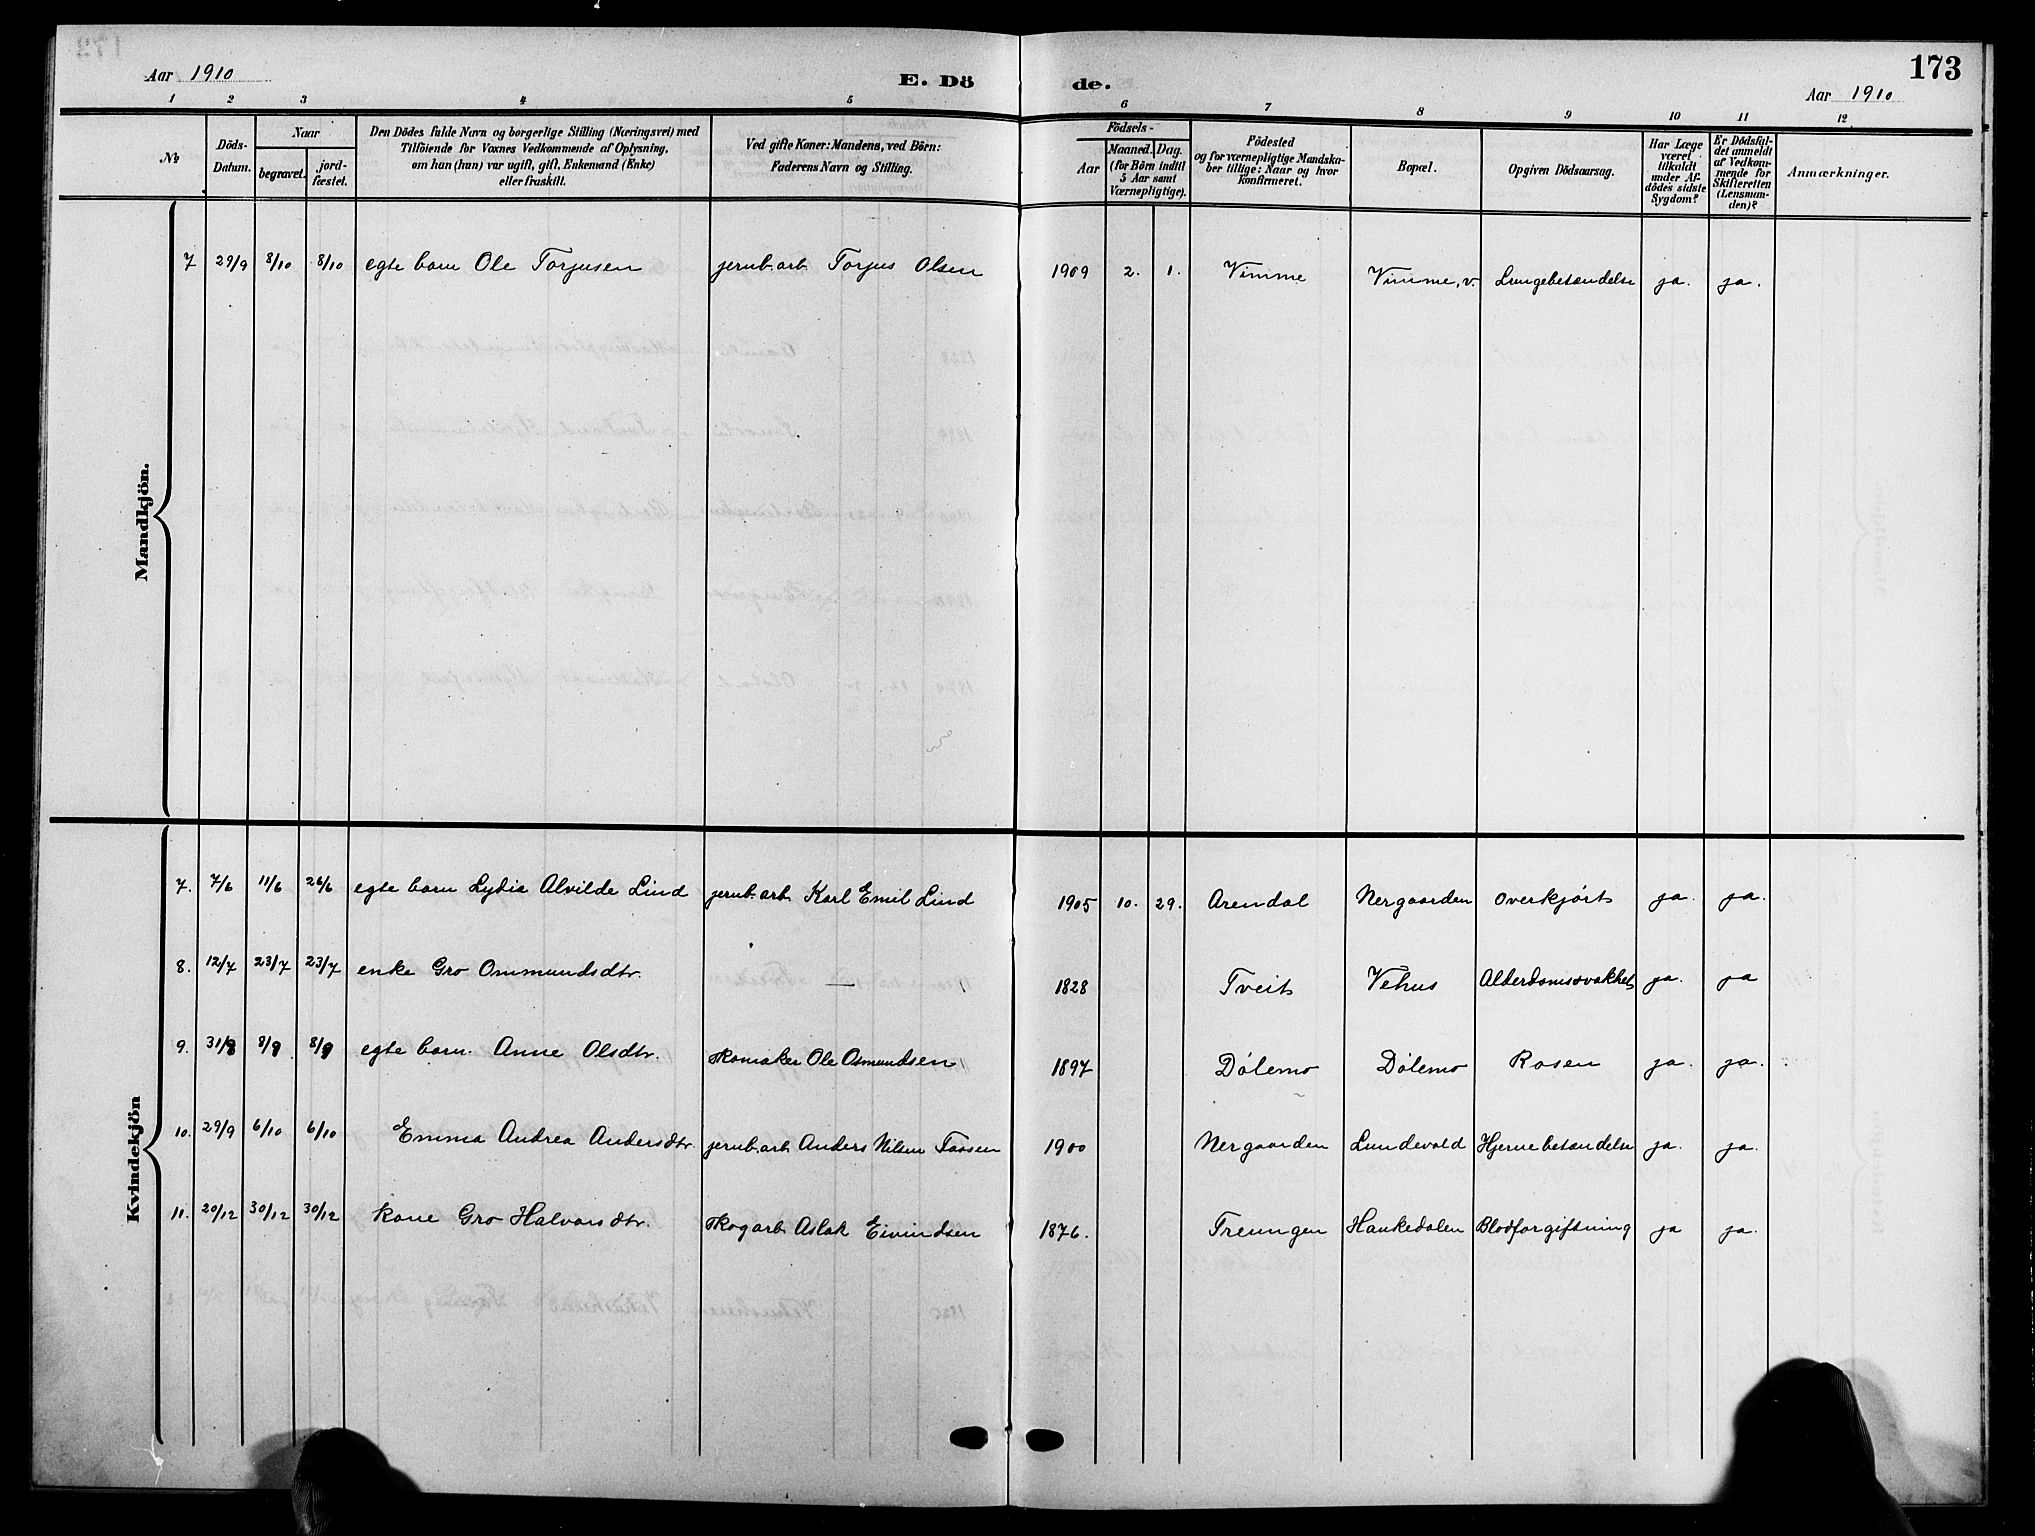 173
Aar 1910
E. Dö de.
Aar 1910
1 2 3 4 5 6 7 8 9 10 11 12
No
Döds-Datum.
Naar
begravet.
jord-fæstet.
Den Dödes fulde Navn og borgerlige Stilling (Næringsvei) med
Tilföiende for Voxnes Vedkommende af Oplysning,
om han (hun) var ugift, gift, Enkemand (Enke)
eller fraskilt.
Ved gifte Koner: Mandens, ved Börn:
Faderens Navn og Stilling.
Födsels-
Aar
Maaned. Dag.
(for Börn indtil
5 Aar samt
Værnepligtige).
Födested
og for værnepligtige Mandska-
ber tillige: Naar og hvor
konfirmeret.
Bopæl.
Opgiven Dödsaarsag.
Har Læge
været
tilkaldt
under Af-
dödes sidste
Sygdom?
Er Dödsfal-
det anmeldt
af Vedkom-
mende for
Skifteretten
(Lensman-
den)?
Anmærkninger.
Mandkjön.
7 29/9 8/10 8/10 egte barn Ole Torjusen jernb.arb. Torjus Olsen 1909 2. 1. Vimme Vimme, v. Lungebetændelse ja. ja.
Kvindekjön
7. 7/6 11/6 26/6 egte barn Lydia Alvilde Lind jernb.arb. Karl Emil Lind 1905 10. 29. Arendal Nergaarden Overkjørt ja. ja.
8. 12/7 23/7 23/7 enke Gro Ommundsdtr. — 1828 Tveit Vehus Alderdomssvakhet ja. ja
9. 31/8 8/9 8/9 egte barn. Anne Olsdtr. skomaker Ole Osmundsen 1897 Dølemo Dølemo Rosen ja. ja.
10. 29/9 6/10 6/10 Emma Andrea Andersdtr. jernb.arb. Anders Nilsen Taasen 1900 Nergaarden Lundevold Hjernebetændelse ja. ja.
11. 20/12 30/12 30/12 kone Gro Halvorsdtr. skogarb. Aslak Eivindsen 1876. Treungen Haukedalen Blodforgiftning ja ja.